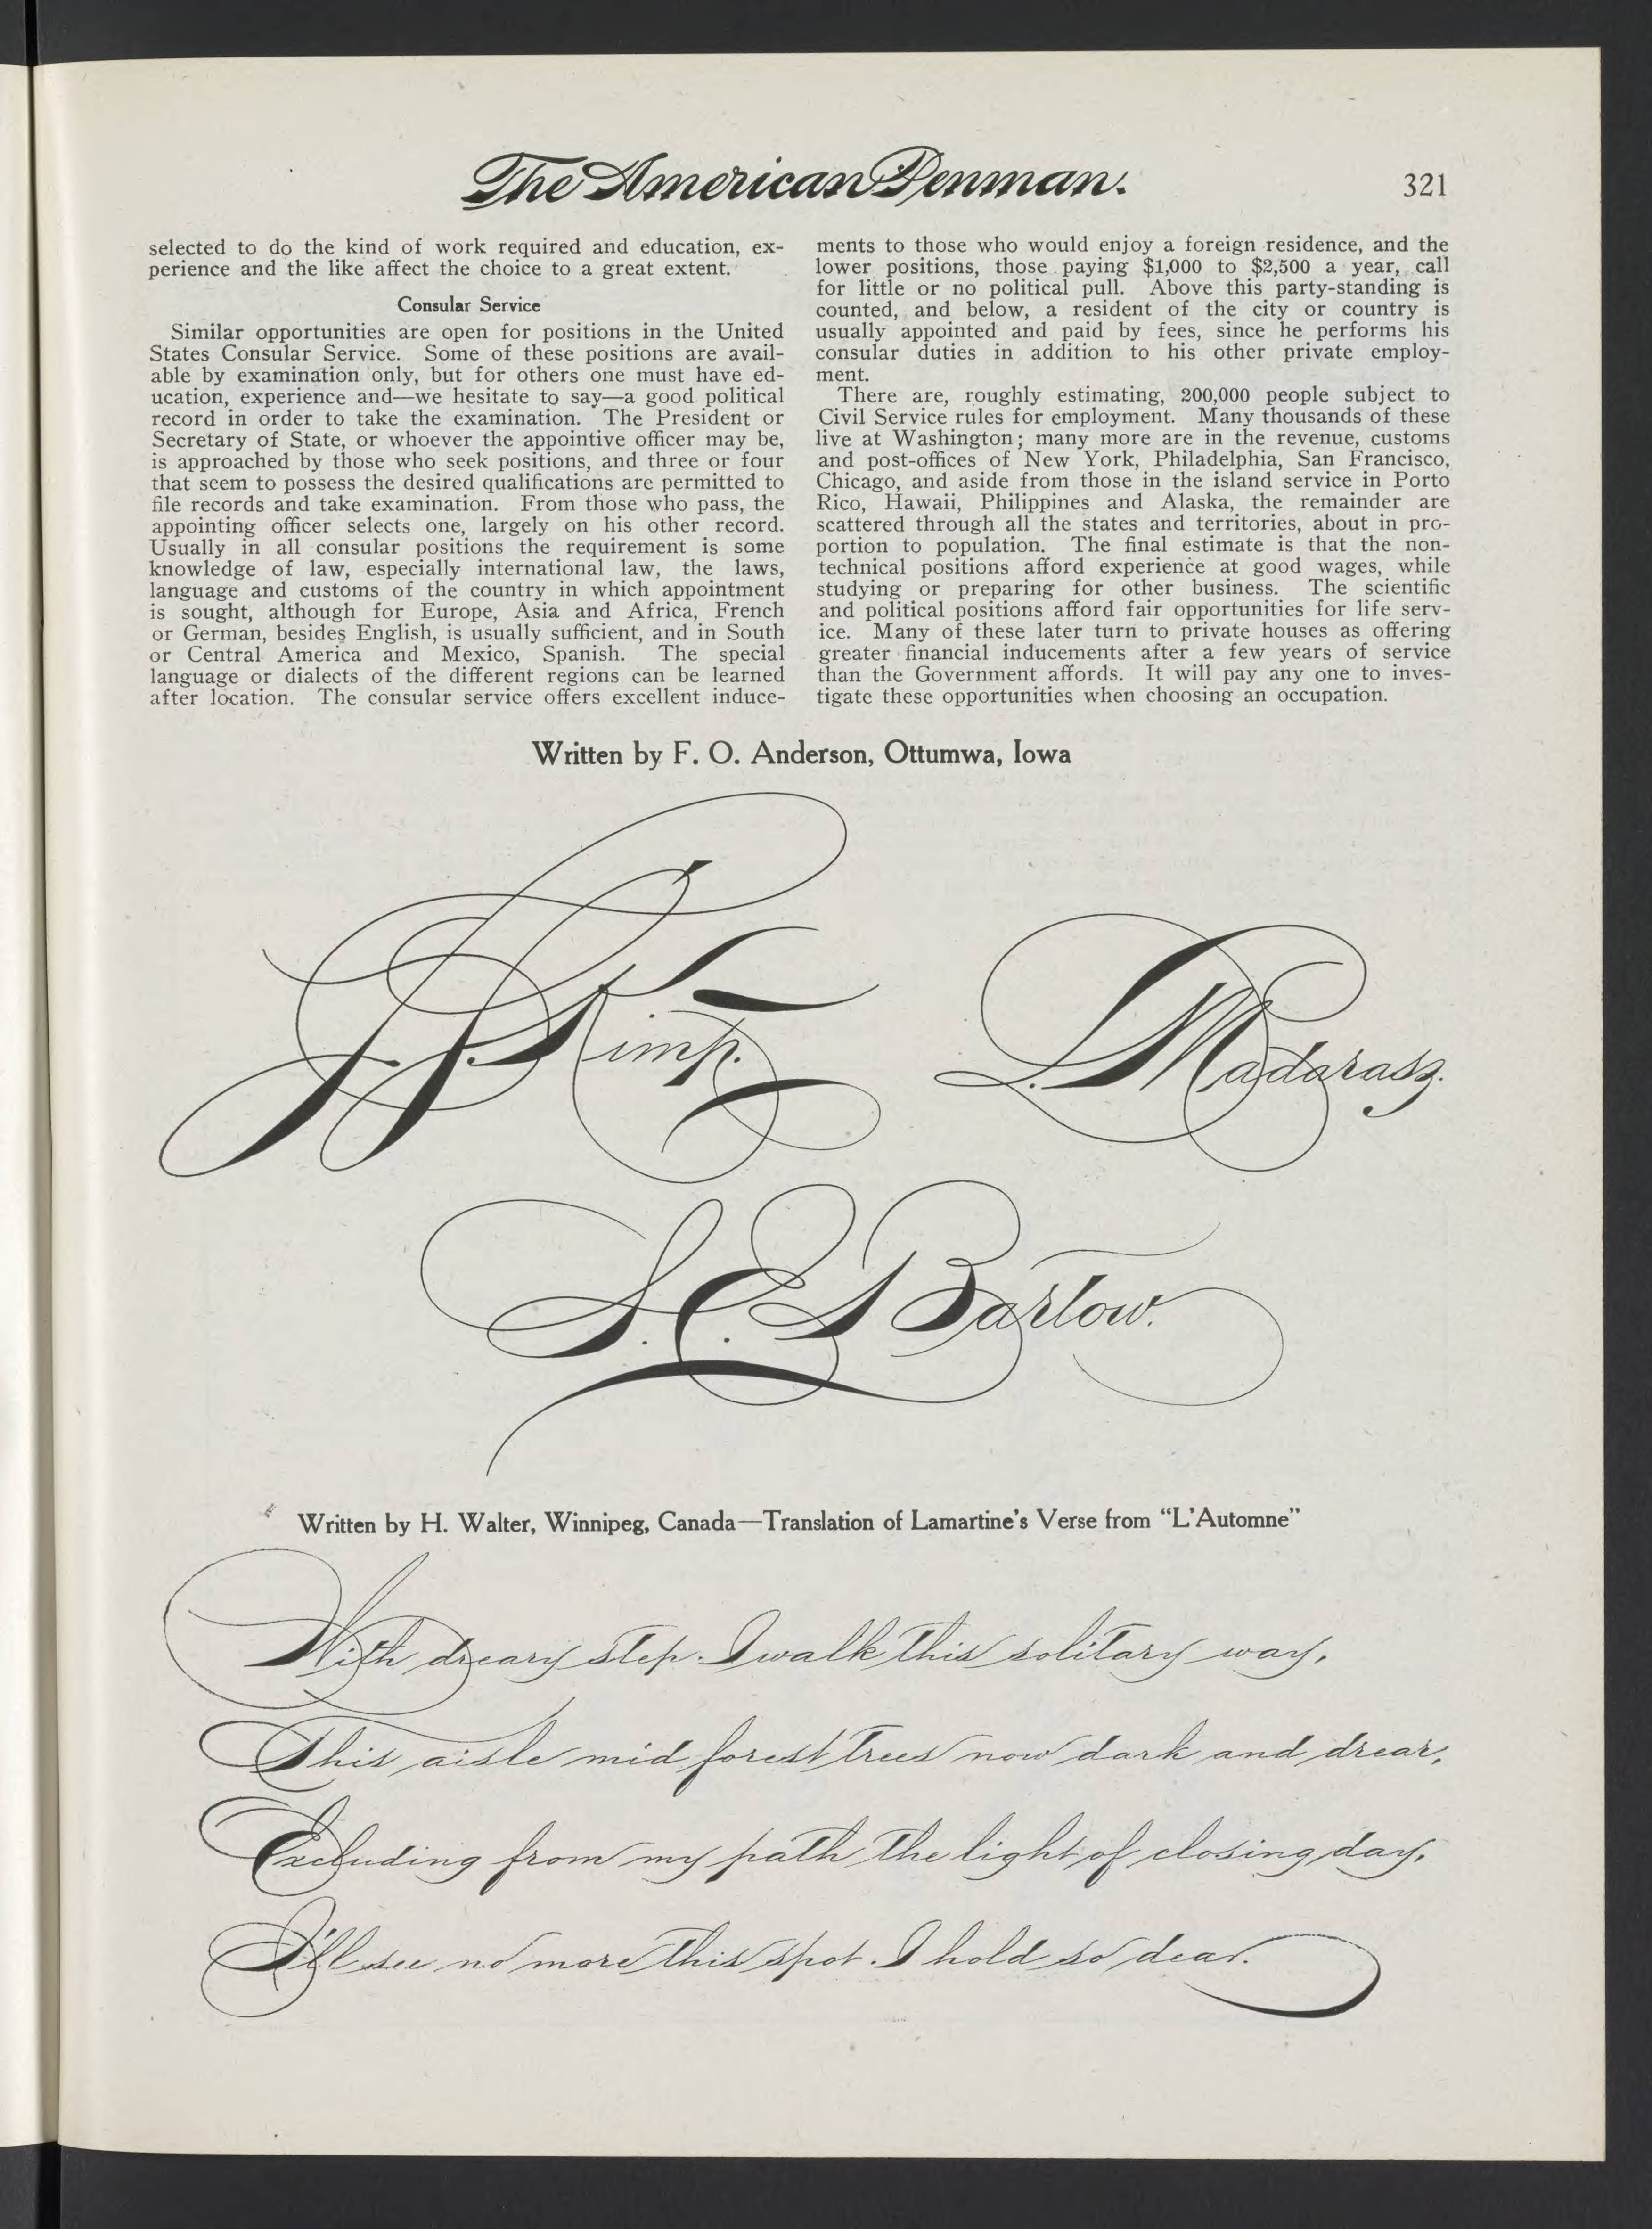 The American Penman.
321
selected to do the kind of work required and education, ex-
perience and the like affect the choice to a great extent.
Consular Service
Similar opportunities are open for positions in the United
States Consular Service. Some of these positions are avail-
able by examination only, but for others one must have ed-
ucation, experience and—we hesitate to say—a good political
record in order to take the examination. The President or
Secretary of State, or whoever the appointive officer may be,
is approached by those who seek positions, and three or four
that seem to possess the desired qualifications are permitted to
file records and take examination. From those who pass, the
appointing officer selects one, largely on his other record.
Usually in all consular positions the requirement is some
knowledge of law, especially international law, the laws,
language and customs of the country in which appointment
is sought, although for Europe, Asia and Africa, French
or German, besides English, is usually sufficient, and in South
or Central America and Mexico, Spanish. The special
language or dialects of the different regions can be learned
after location. The consular service offers excellent induce-
ments to those who would enjoy a foreign residence, and the
lower positions, those paying $1,000 to $2,500 a year, call
for little or no political pull. Above this party-standing is
counted, and below, a resident of the city or country is
usually appointed and paid by fees, since he performs his
consular duties in addition to his other private employ-
ment.
There are, roughly estimating, 200,000 people subject to
Civil Service rules for employment. Many thousands of these
live at Washington; many more are in the revenue, customs
and post-offices of New York, Philadelphia, San Francisco,
Chicago, and aside from those in the island service in Porto
Rico, Hawaii, Philippines and Alaska, the remainder are
scattered through all the states and territories, about in pro-
portion to population. The final estimate is that the non-
technical positions afford experience at good wages, while
studying or preparing for other business. The scientific
and political positions afford fair opportunities for life serv-
ice. Many of these later turn to private houses as offering
greater financial inducements after a few years of service
than the Government affords. It will pay any one to inves-
tigate these opportunities when choosing an occupation.
Written by F. O. Anderson, Ottumwa, Iowa
Kimp.
L. Madarasz.
S. E. Bartow.
Written by H. Walter, Winnipeg, Canada—Translation of Lamartine's Verse from "L'Automne"
With dreary step I walk this solitary way,
This aisle mid forest trees now dark and drear,
Excluding from my path the light of closing day,
I'll see no more this spot I hold so dear.